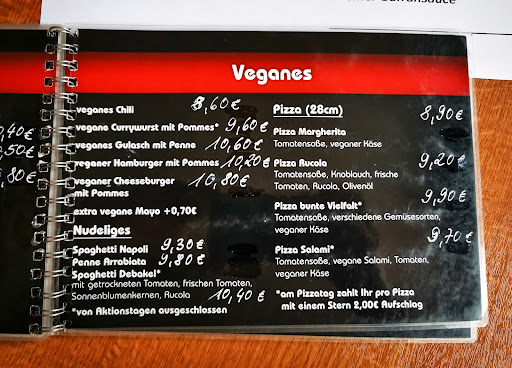 Veganes
veganes Chili 8,60€
vegane Currywurst mit Pommes* 9,60€
veganes Gulasch mit Penne 10,60€
veganer Hamburger mit Pommes 10,20€
veganer Cheeseburger 10,80€
mit Pommes
extra vegane Mayo +0,70€
Nudeliges
Spaghetti Napoli 9,30€
Penne Arrabiata 9,80€
Spaghetti Debakel*
mit getrockneten Tomaten, frischen Tomaten,
Sonnenblumenkernen, Rucola 10,40€
*von Aktionstagen ausgeschlossen
Pizza (28cm) 8,90€
Pizza Margherita
Tomatensoße, veganer Käse
Pizza Rucola 9,20€
Tomatensoße, Knoblauch, frische
Tomaten, Rucola, Olivenöl
Pizza bunte Vielfalt* 9,90€
Tomatensoße, verschiedene Gemüsesorten,
veganer Käse
Pizza Salami* 9,70€
Tomatensoße, vegane Salami, Tomaten,
veganer Käse
*am Pizzatag zahlt Ihr pro Pizza
mit einem Stern 2,00€ Aufschlag